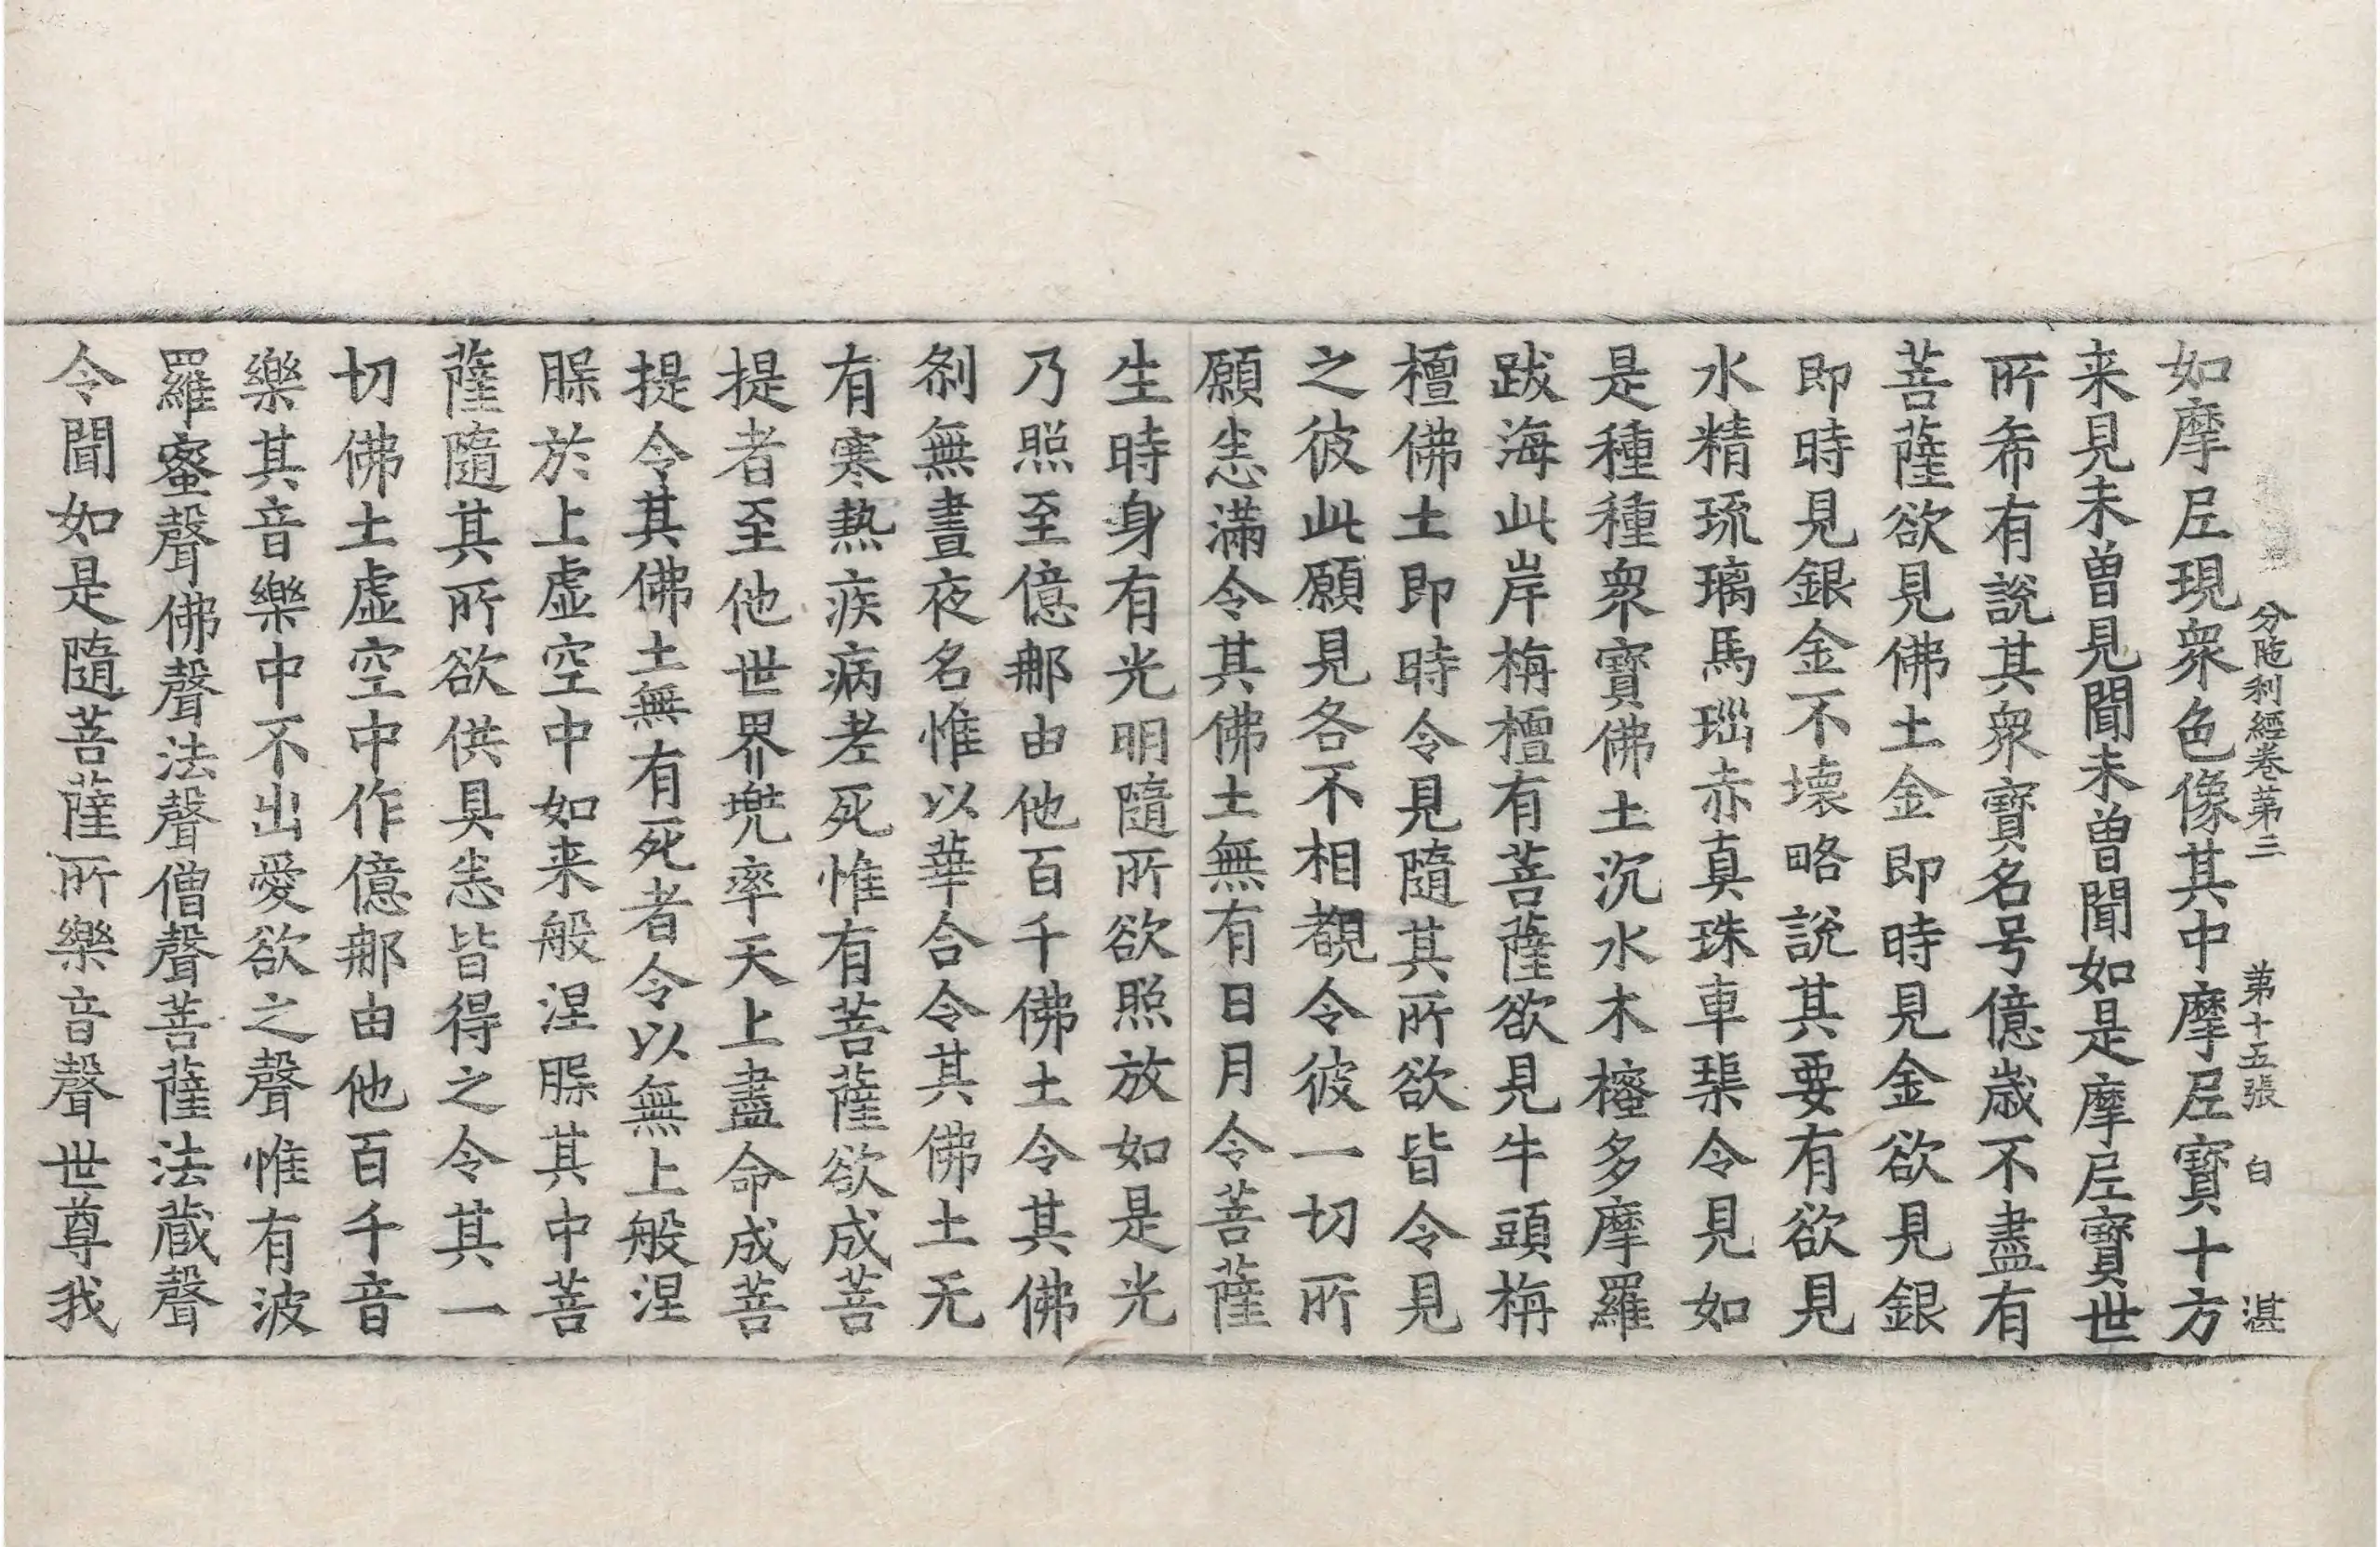 分陁利經卷第三 第十五張 白 湛
如摩尼現衆色像其中摩尼寶十方
来見未曽見聞未曽聞如是摩尼寶世
所希有說其衆寶名号億歲不盡有
菩薩欲見佛土金即時見金欲見銀
即時見銀金不壞略說其要有欲見
水精琉璃馬瑙赤真珠車𤦲令見如
是種種衆寶佛土沉水木櫁多摩羅
跋海此岸栴檀有菩薩欲見牛頭栴
檀佛土即時令見隨其所欲皆令見
之彼此願見各不相覩令彼一切所
願悉滿令其佛土無有日月令菩薩
生時身有光明隨所欲照放如是光
乃照至億那由他百千佛土令其佛
刹無晝夜名惟以華合令其佛土无
有寒熱疾病老死惟有菩薩欲成菩
提者至他世界兠率天上盡命成菩
提令其佛土無有死者令以無上般涅
𦞙於上虛空中如来般涅𦞙其中菩
薩隨其所欲供具悉皆得之令其一
切佛土虛空中作億那由他百千音
樂其音樂中不出愛欲之聲惟有波
羅蜜聲佛聲法聲僧聲菩薩法蔵聲
令聞如是隨菩薩所樂音聲世尊我